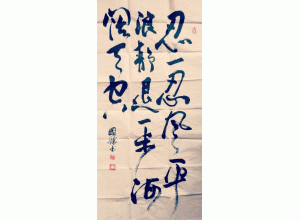 忍一忍风平
浪静退一步海
阔天空